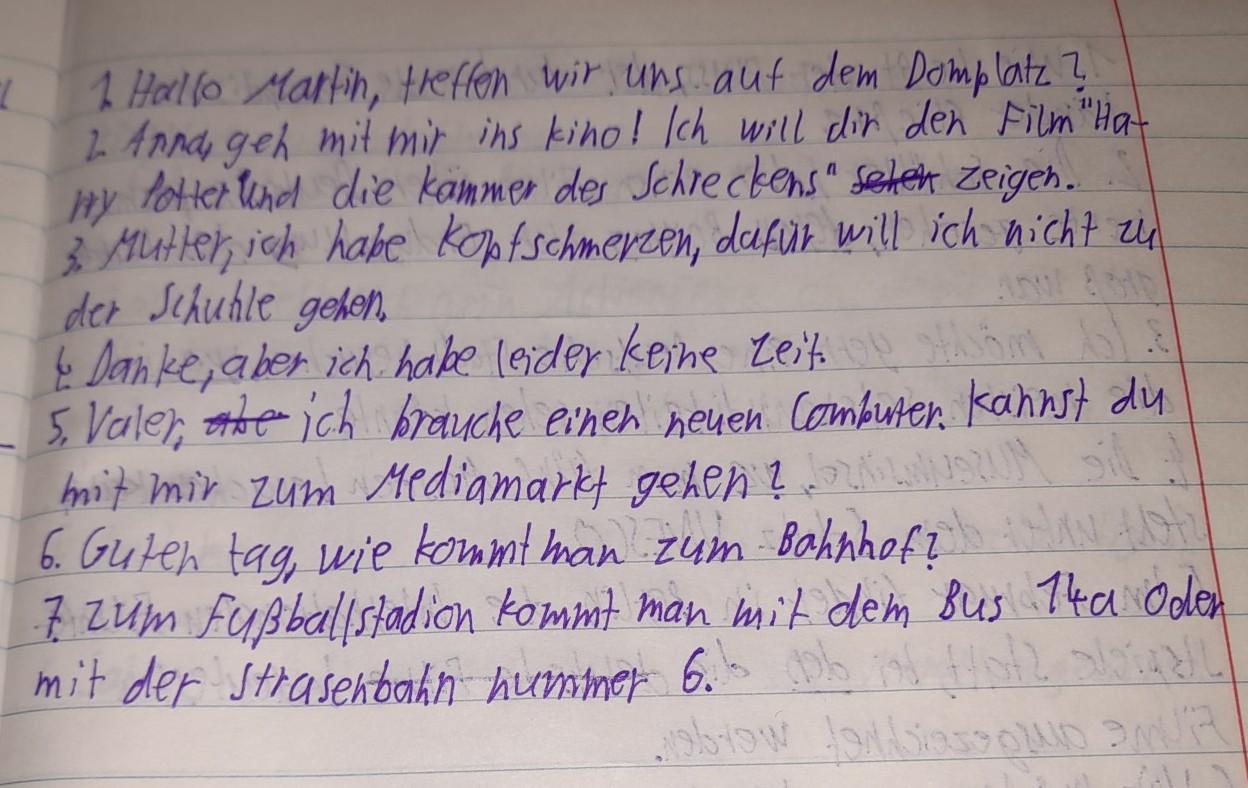 1. Hallo Martin, treffen wir uns auf dem Domplatz?
2. Anna, geh mit mir ins kino! Ich will dir den Film "Ha-
rry Potter und die kammer des Schreckens" sehen zeigen.
3. Mutter, ich habe Kopfschmerzen, dafür will ich nicht zu
der Schuhle gehen.
4. Danke, aber ich habe leider keine Zeit.
5. Vater, abe ich brauche einen neuen Computer. Kannst du
mit mir zum Mediamarkt gehen?
6. Guten tag, wie kommt man zum Bahnhof?
7. Zum Fußballstadion kommt man mit dem Bus 14a Oder
mit der Strasenbahn nummer 6.